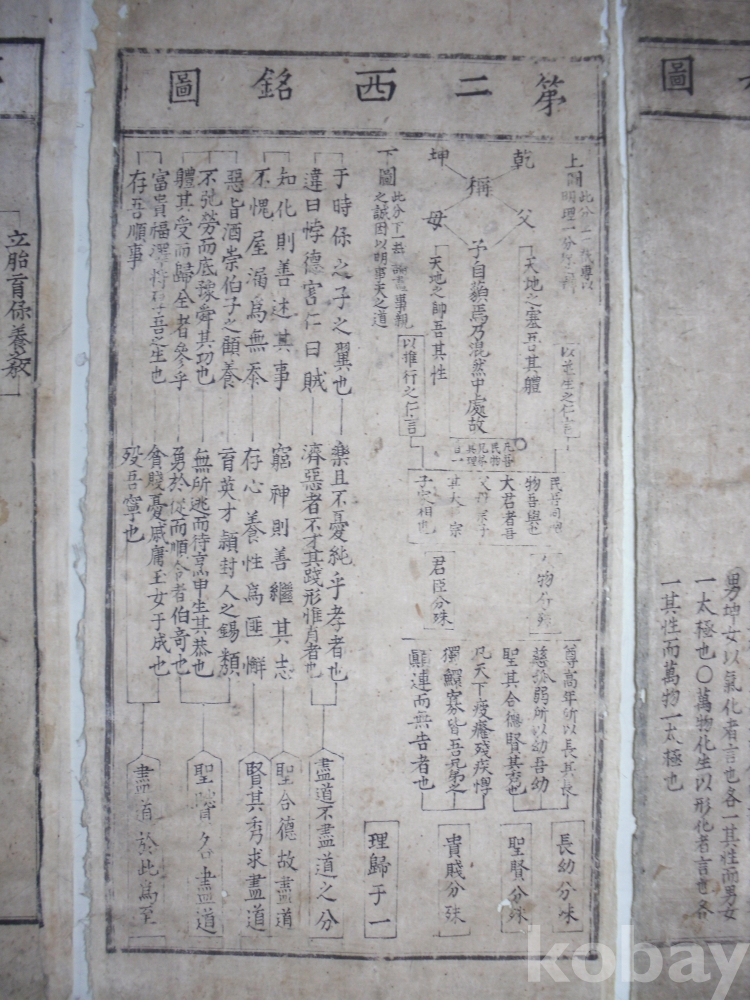 第二西銘圖
圖
上圖
乾父坤母
稱
天地之塞吾其體
天地之帥吾其性
子自藐焉乃混然中處故
以並生之仁言
以推行之仁言
民吾同胞
物吾與也
大君者吾
父母宗子
其大臣宗
子家相也
君臣分殊
尊高年所以長其長
慈孤弱所以幼吾幼
聖其合德賢其秀也
凡天下疲癃殘疾惸
獨鰥寡皆吾兄弟之
顚連而無告者也
長幼分殊
聖賢分殊
貴賤分殊
理歸于一
下圖
之誠因以明事天之道
于時保之子之翼也
樂且不憂純乎孝者也
違曰悖德害仁曰賊
濟惡者不才其踐形惟肖者也
盡道不盡道之分
知化則善述其事
窮神則善繼其志
聖合德故盡道
不愧屋漏爲無忝
存心養性爲匪懈
賢其秀求盡道
惡旨酒崇伯子之顧養
育英才潁封人之錫類
不弛勞而底豫舜其功也
無所逃而待烹申生其恭也
聖賢各盡道
體其受而歸全者參乎
勇於從而順令者伯奇也
富貴福澤將厚吾之生也
貧賤憂戚庸玉女于成也
存吾順事
歿吾寧也
盡道於此爲至
男坤女以氣化者言也各一其性而男女
一太極也〇萬物化生以形化者言也各
一其性而萬物一太極也
立胎育保養之敎
kobay